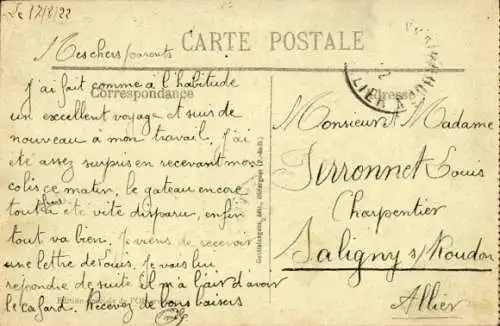 Le 17/8/22
CARTE POSTALE
Mes chers parents
Correspondance
J'ai fait comme à l'habitude
un excellent voyage et suis de
nouveau à mon travail. J'ai
été assez surpris en recevant mon
colis ce matin, le gateau encore
tout a été vite disparu, enfin
tout va bien. Je viens de recevoir
une lettre de Louis. Je vais lui
répondre de suite il m'a l'air d'avoir
le cafard. Recevez de bons baisers
Edition
Adresse
Monsieur Madame
Perronnet Louis
Charpentier
Saligny s/Roudon
Allier